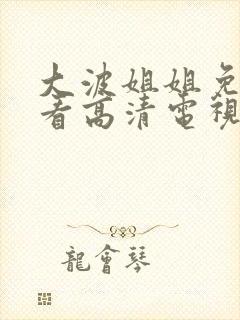 大波姐姐免
看高清電視
龍會琴